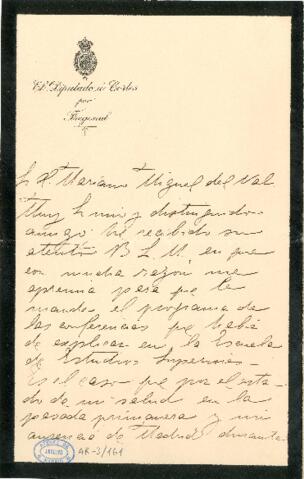 El Diputado á Cortes
por
Fregenal
Sr. D. Mariano Miguel del Val
Muy Sr. mio y distinguido
amigo: He recibido su
atento B. L. M. en que
con mucha razon me
apremia para que le
mande el programa de
las conferencias que había
de explicar en la Escuela
de Estudios Superiores.
Es el caso que por el esta-
do de mi salud en la
pasada primavera y mi
ausencia de Madrid durante
AR-3/161